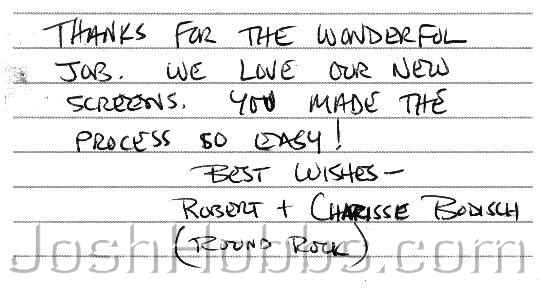 THANKS FOR THE WONDERFUL
JOB. WE LOVE OUR NEW
SCREENS. YOU MADE THE
PROCESS SO EASY!
BEST WISHES—
ROBERT + CHARISSE BODISCH
(ROUND ROCK)
JoshHobbs.com